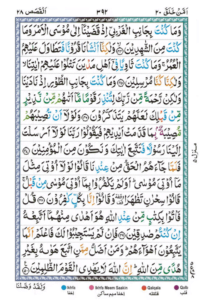 اَمَّنْ خَلَقَ ۲۰ ۳۹۲ اَلْقَصَص ۲۸
وَمَا كُنْتَ بِجَانِبِ الْغَرْبِيِّ اِذْ قَضَيْنَاۤ اِلٰى مُوْسَى الْاَمْرَ وَمَا
كُنْتَ مِنَ الشّٰهِدِيْنَ وَلٰكِنَّاۤ اَنْشَاْنَا قُرُوْنًا فَتَطَاوَلَ عَلَيْهِمُ
الْعُمُرُ وَمَا كُنْتَ ثَاوِيًا فِيْۤ اَهْلِ مَدْيَنَ تَتْلُوْا عَلَيْهِمْ اٰيٰتِنَا
وَلٰكِنَّا كُنَّا مُرْسِلِيْنَ وَمَا كُنْتَ بِجَانِبِ الطُّوْرِ اِذْ نَادَيْنَا
وَلٰكِنْ رَّحْمَةً مِّنْ رَّبِّكَ لِتُنْذِرَ قَوْمًا مَّاۤ اَتٰىهُمْ مِّنْ نَّذِيْرٍ
مِّنْ قَبْلِكَ لَعَلَّهُمْ يَتَذَكَّرُوْنَ وَلَوْلَاۤ اَنْ تُصِيْبَهُمْ
مُّصِيْبَةٌ ۢ بِمَا قَدَّمَتْ اَيْدِيْهِمْ فَيَقُوْلُوْا رَبَّنَا لَوْلَاۤ اَرْسَلْتَ
اِلَيْنَا رَسُوْلًا فَنَتَّبِعَ اٰيٰتِكَ وَنَكُوْنَ مِنَ الْمُؤْمِنِيْنَ
فَلَمَّا جَآءَهُمُ الْحَقُّ مِنْ عِنْدِنَا قَالُوْا لَوْلَاۤ اُوْتِيَ مِثْلَ
مَاۤ اُوْتِيَ مُوْسٰى اَوَلَمْ يَكْفُرُوْا بِمَاۤ اُوْتِيَ مُوْسٰى مِنْ قَبْلُ
قَالُوْا سِحْرٰنِ تَظَاهَرَا وَقَالُوْۤا اِنَّا بِكُلٍّ كٰفِرُوْنَ قُلْ
فَاْتُوْا بِكِتٰبٍ مِّنْ عِنْدِ اللّٰهِ هُوَ اَهْدٰى مِنْهُمَاۤ اَتَّبِعْهُ
اِنْ كُنْتُمْ صٰدِقِيْنَ فَاِنْ لَّمْ يَسْتَجِيْبُوْا لَكَ فَاعْلَمْ اَنَّمَا
يَتَّبِعُوْنَ اَهْوَآءَهُمْ وَمَنْ اَضَلُّ مِمَّنِ اتَّبَعَ هَوٰىهُ بِغَيْرِ
هُدًى مِّنَ اللّٰهِ اِنَّ اللّٰهَ لَا يَهْدِى الْقَوْمَ الظّٰلِمِيْنَ
وَلَقَدْ وَصَّلْنَا